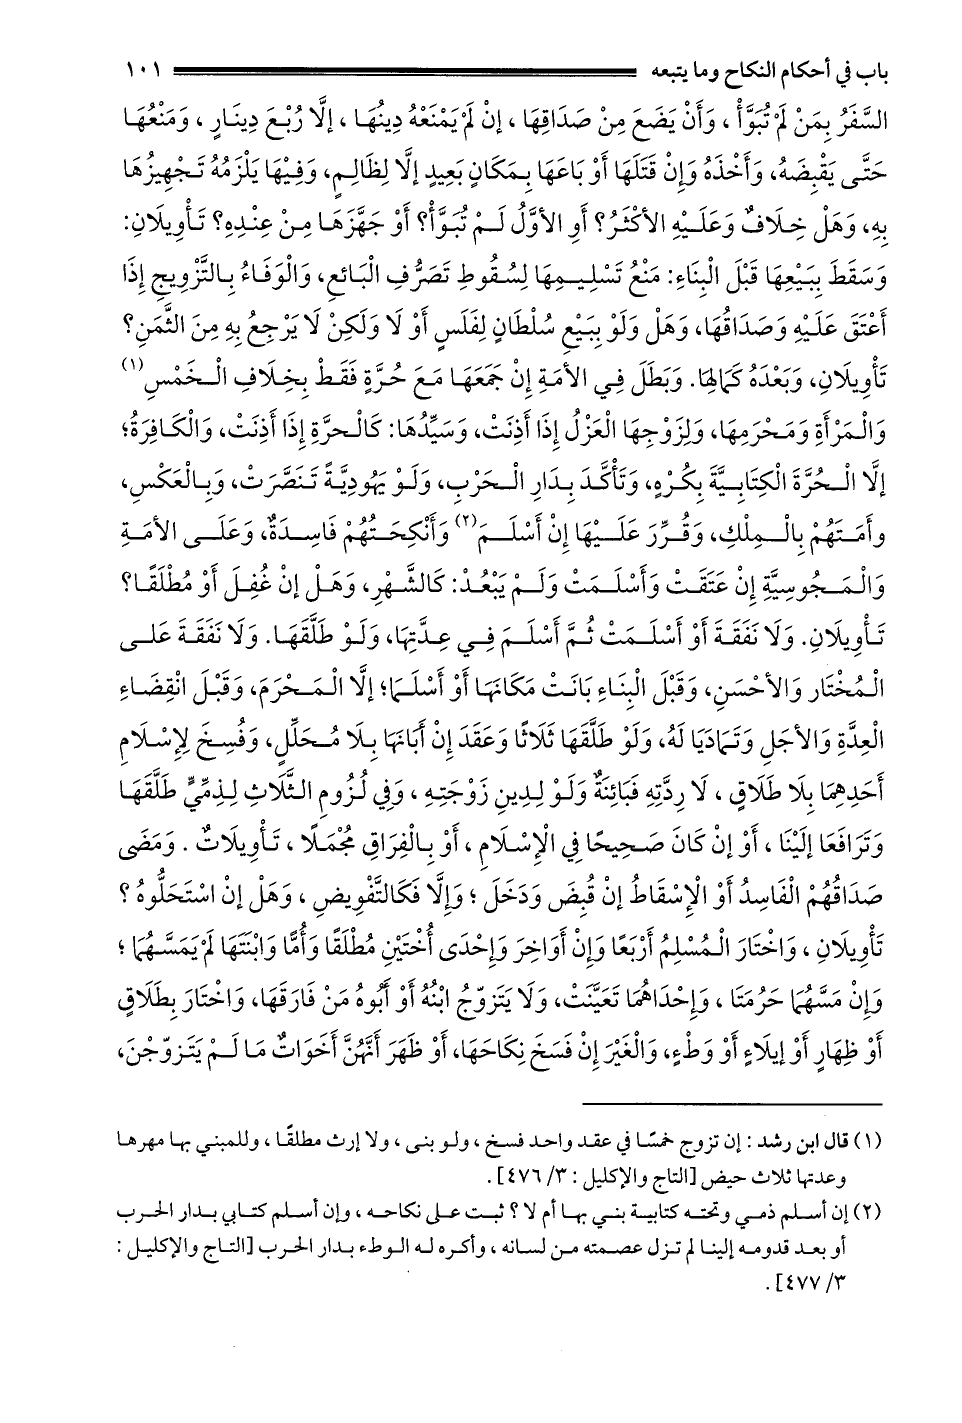 باب في أحكام النكاح وما يتبعه ١٠١
السَّفَرُ بِمَنْ لَمْ تُبَوَّأْ ، وَأَنْ يَضَعَ مِنْ صَدَاقِهَا ، إِنْ لَمْ يَمْنَعْهُ دِينُهَا ، إلَّا رُبْعَ دِينَارٍ ، وَمَنْعُهَا
حَتَّى يَقْبِضَهُ، وَأَخْذَهُ وَإِنْ قَتَلَهَا أَوْ بَاعَهَا بِمَكَانٍ بَعِيدٍ إلَّا لِظَالِمٍ، وَفِيْهَا يَلْزَمُهُ تَجْهِيزُهَا
بِهِ، وَهَلْ خِلَافٌ وَعَلَيْهِ الأَكْثَرُ؟ أَوِ الأوَّلُ لَمْ تُبَوَّأْ؟ أَوْ جَهَّزَهَا مِنْ عِنْدِهِ؟ تَأْوِيلَانِ:
وَسَقَطَ بِبَيْعِهَا قَبْلَ الْبِنَاءِ: مَنْعُ تَسْلِيمِهَا لِسُقُوطِ تَصَرُّفِ الْبَائِعِ، وَالْوَفَاءُ بِالتَّزْوِيجِ إذَا
أَعْتَقَ عَلَيْهِ وَصَدَاقُهَا، وَهَلْ وَلَوْ بِبَيْعِ سُلْطَانٍ لِفَلَسٍ أَوْ لَا وَلَكِنْ لَا يَرْجِعُ بِهِ مِنَ الثَّمَنِ؟
تَأْوِيلَانِ، وَبَعْدَهُ كَمَالِهَا. وَبَطَلَ فِي الأمَةِ إنْ جَمَعَهَا مَعَ حُرَّةٍ فَقَطْ بِخِلَافِ الْخَمْسِ(١)
وَالْمَرْأَةِ وَمَحْرَمِهَا، وَلِزَوْجِهَا الْعَزْلُ إذَا أَذِنَتْ، وَسَيِّدُهَا: كَالْحرَّةِ إذَا أَذِنَتْ، وَالْكَافِرَةُ؛
إلَّا الْحُرَّةَ الْكِتَابِيَّةَ بِكُرْهٍ، وَتَأَكَّدَ بِدَارِ الْحَرْبِ، وَلَوْ يَهُودِيَّةً تَنَصَّرَتْ، وَبِالْعَكْسِ،
وأَمَتَهُمْ بِالْمِلْكِ، وَقُرِّرَ عَلَيْهَا إنْ أَسْلَمَ(٢) وَأَنْكِحَتُهُمْ فَاسِدَةٌ، وَعَلَى الأمَةِ
وَالْمَجُوسِيَّةِ إنْ عَتَقَتْ وَأَسْلَمَتْ وَلَمْ يَبْعُدْ: كَالشَّهْرِ، وَهَلْ إنْ غُفِلَ أَوْ مُطْلَقًا؟
تَأْوِيلَانِ. وَلَا نَفَقَةَ أَوْ أَسْلَمَتْ ثُمَّ أَسْلَمَ فِي عِدَّتِهَا، وَلَوْ طَلَّقَهَا. وَلَا نَفَقَةَ عَلَى
الْمُخْتَارِ وَالأحْسَنِ، وَقَبْلَ الْبِنَاءِ بَانَتْ مَكَانَهَا أَوْ أَسْلَمَا؛ إلَّا الْمَحْرَمَ، وَقَبْلَ انْقِضَاءِ
الْعِدَّةِ وَالأجَلِ وَتَمَادَيَا لَهُ، وَلَوْ طَلَّقَهَا ثَلَاثًا وَعَقَدَ إنْ أَبَانَهَا بِلَا مُحَلِّلٍ، وَفُسِخَ لِإِسْلَامِ
أَحَدِهِمَا بِلَا طَلَاقٍ ، لَا رِدَّتِهِ فَبَائِنَةٌ وَلَوْ لِدِينِ زَوْجَتِهِ ، وَفِي لُزُومِ الثَّلَاثِ لِذِمِّيٍّ طَلَّقَهَا
وَتَرَافَعَا إلَيْنَا ، أَوْ إنْ كَانَ صَحِيحًا فِي الْإِسْلَامِ ، أَوْ بِالْفِرَاقِ مُجْمَلًا ، تَأْوِيلَاتٌ . وَمَضَى
صَدَاقُهُمْ الْفَاسِدُ أَوْ الْإِسْقَاطُ إنْ قُبِضَ وَدَخَلَ ؛ وَإِلَّا فَكَالتَّفْوِيضِ ، وَهَلْ إنْ اسْتَحَلُّوهُ ؟
تَأْوِيلَانِ ، وَاخْتَارَ الْمُسْلِمُ أَرْبَعًا وَإِنْ أَوَاخِرَ وَإِحْدَى أُخْتَيْنِ مُطْلَقًا وَأُمًّا وَابْنَتَهَا لَمْ يَمَسَّهُمَا ؛
وَإِنْ مَسَّهُمَا حَرُمَتَا ، وَإِحْدَاهُمَا تَعَيَّنَتْ، وَلَا يَتَزَوَّجُ ابْنُهُ أَوْ أَبُوهُ مَنْ فَارَقَهَا، وَاخْتَارَ بِطَلَاقٍ
أَوْ ظِهَارٍ أَوْ إيلَاءٍ أَوْ وَطْءٍ، وَالْغَيْرَ إنْ فَسَخَ نِكَاحَهَا، أَوْ ظَهَرَ أَنَّهُنَّ أَخَوَاتٌ مَا لَمْ يَتَزَوَّجْنَ،
(١) قال ابن رشد : إن تزوج خمسًا في عقد واحد فسخ ، ولو بنى ، ولا إرث مطلقًا ، وللمبني بها مهرها
وعدتها ثلاث حيض [التاج والإكليل : ٣/ ٤٧٦] .
(٢) إن أسلم ذمي وتحته كتابية بني بها أم لا ؟ ثبت على نكاحه ، وإن أسلم كتابي بدار الحرب
أو بعد قدومه إلينا لم تزل عصمته من لسانه ، وأكره له الوطء بدار الحرب [التاج والإكليل :
٣/ ٤٧٧] .